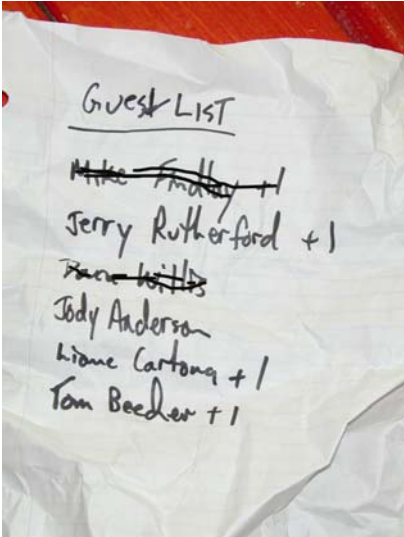 Guest LIST
Mike Findlay +1
Jerry Rutherford + 1
Willis
Jody Anderson
Liane Cartona + 1
Tom Beecher + 1